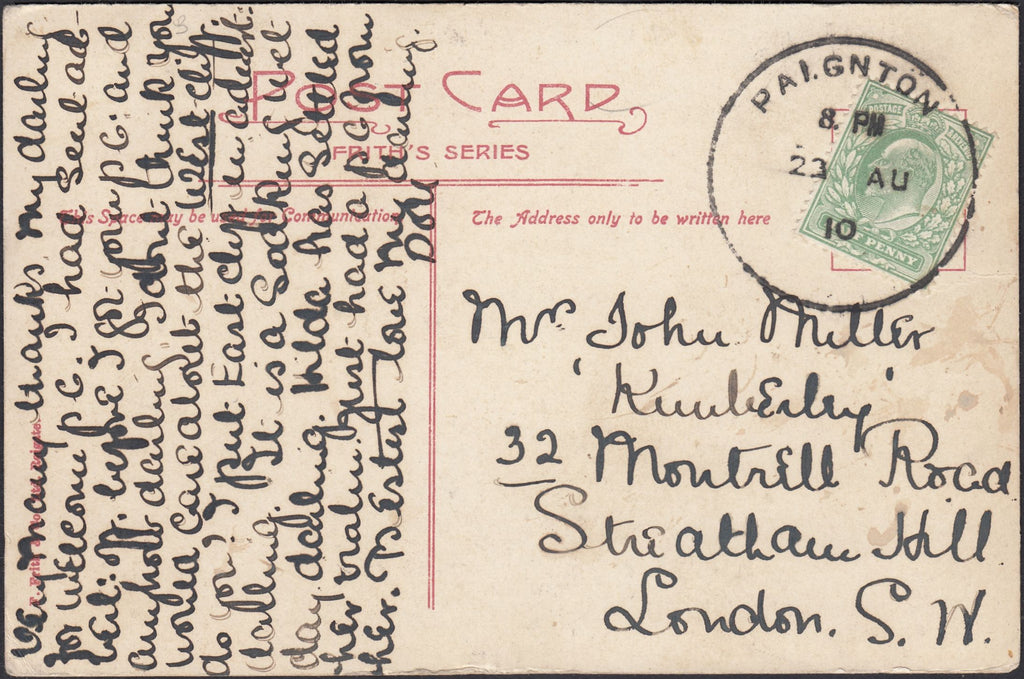 POST CARD
FRITH'S SERIES
This Space may be used for Communication
The Address only to be written here
PAIGNTON
8. PM
23 AU
10
POSTAGE
PENNY
Mr John Miller
'Kimberley'
32 Montrell Road
Streatham Hill
London. S. W.
Very many thanks my darling
for welcome P.C. I had sent ad-
: off. before I got your P.C. and
anyhow darling I dont think you
would care about the West-cliff
do you? I put East-cliff in advt:
It is a Sodking wet
day darling. Hilda has settled
her just had a P.C. from
her. Best love my darling.
Doll